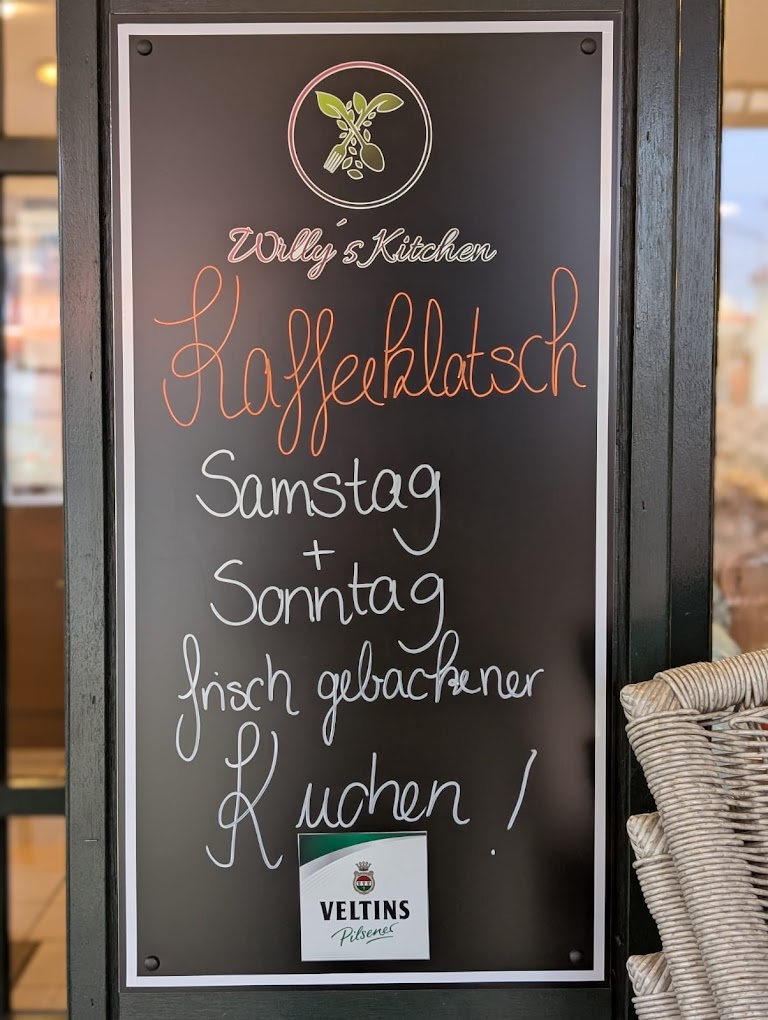 Willy´s Kitchen
Kaffeeklatsch
Samstag
+
Sonntag
frisch gebackener
Kuchen !
VELTINS
Pilsener